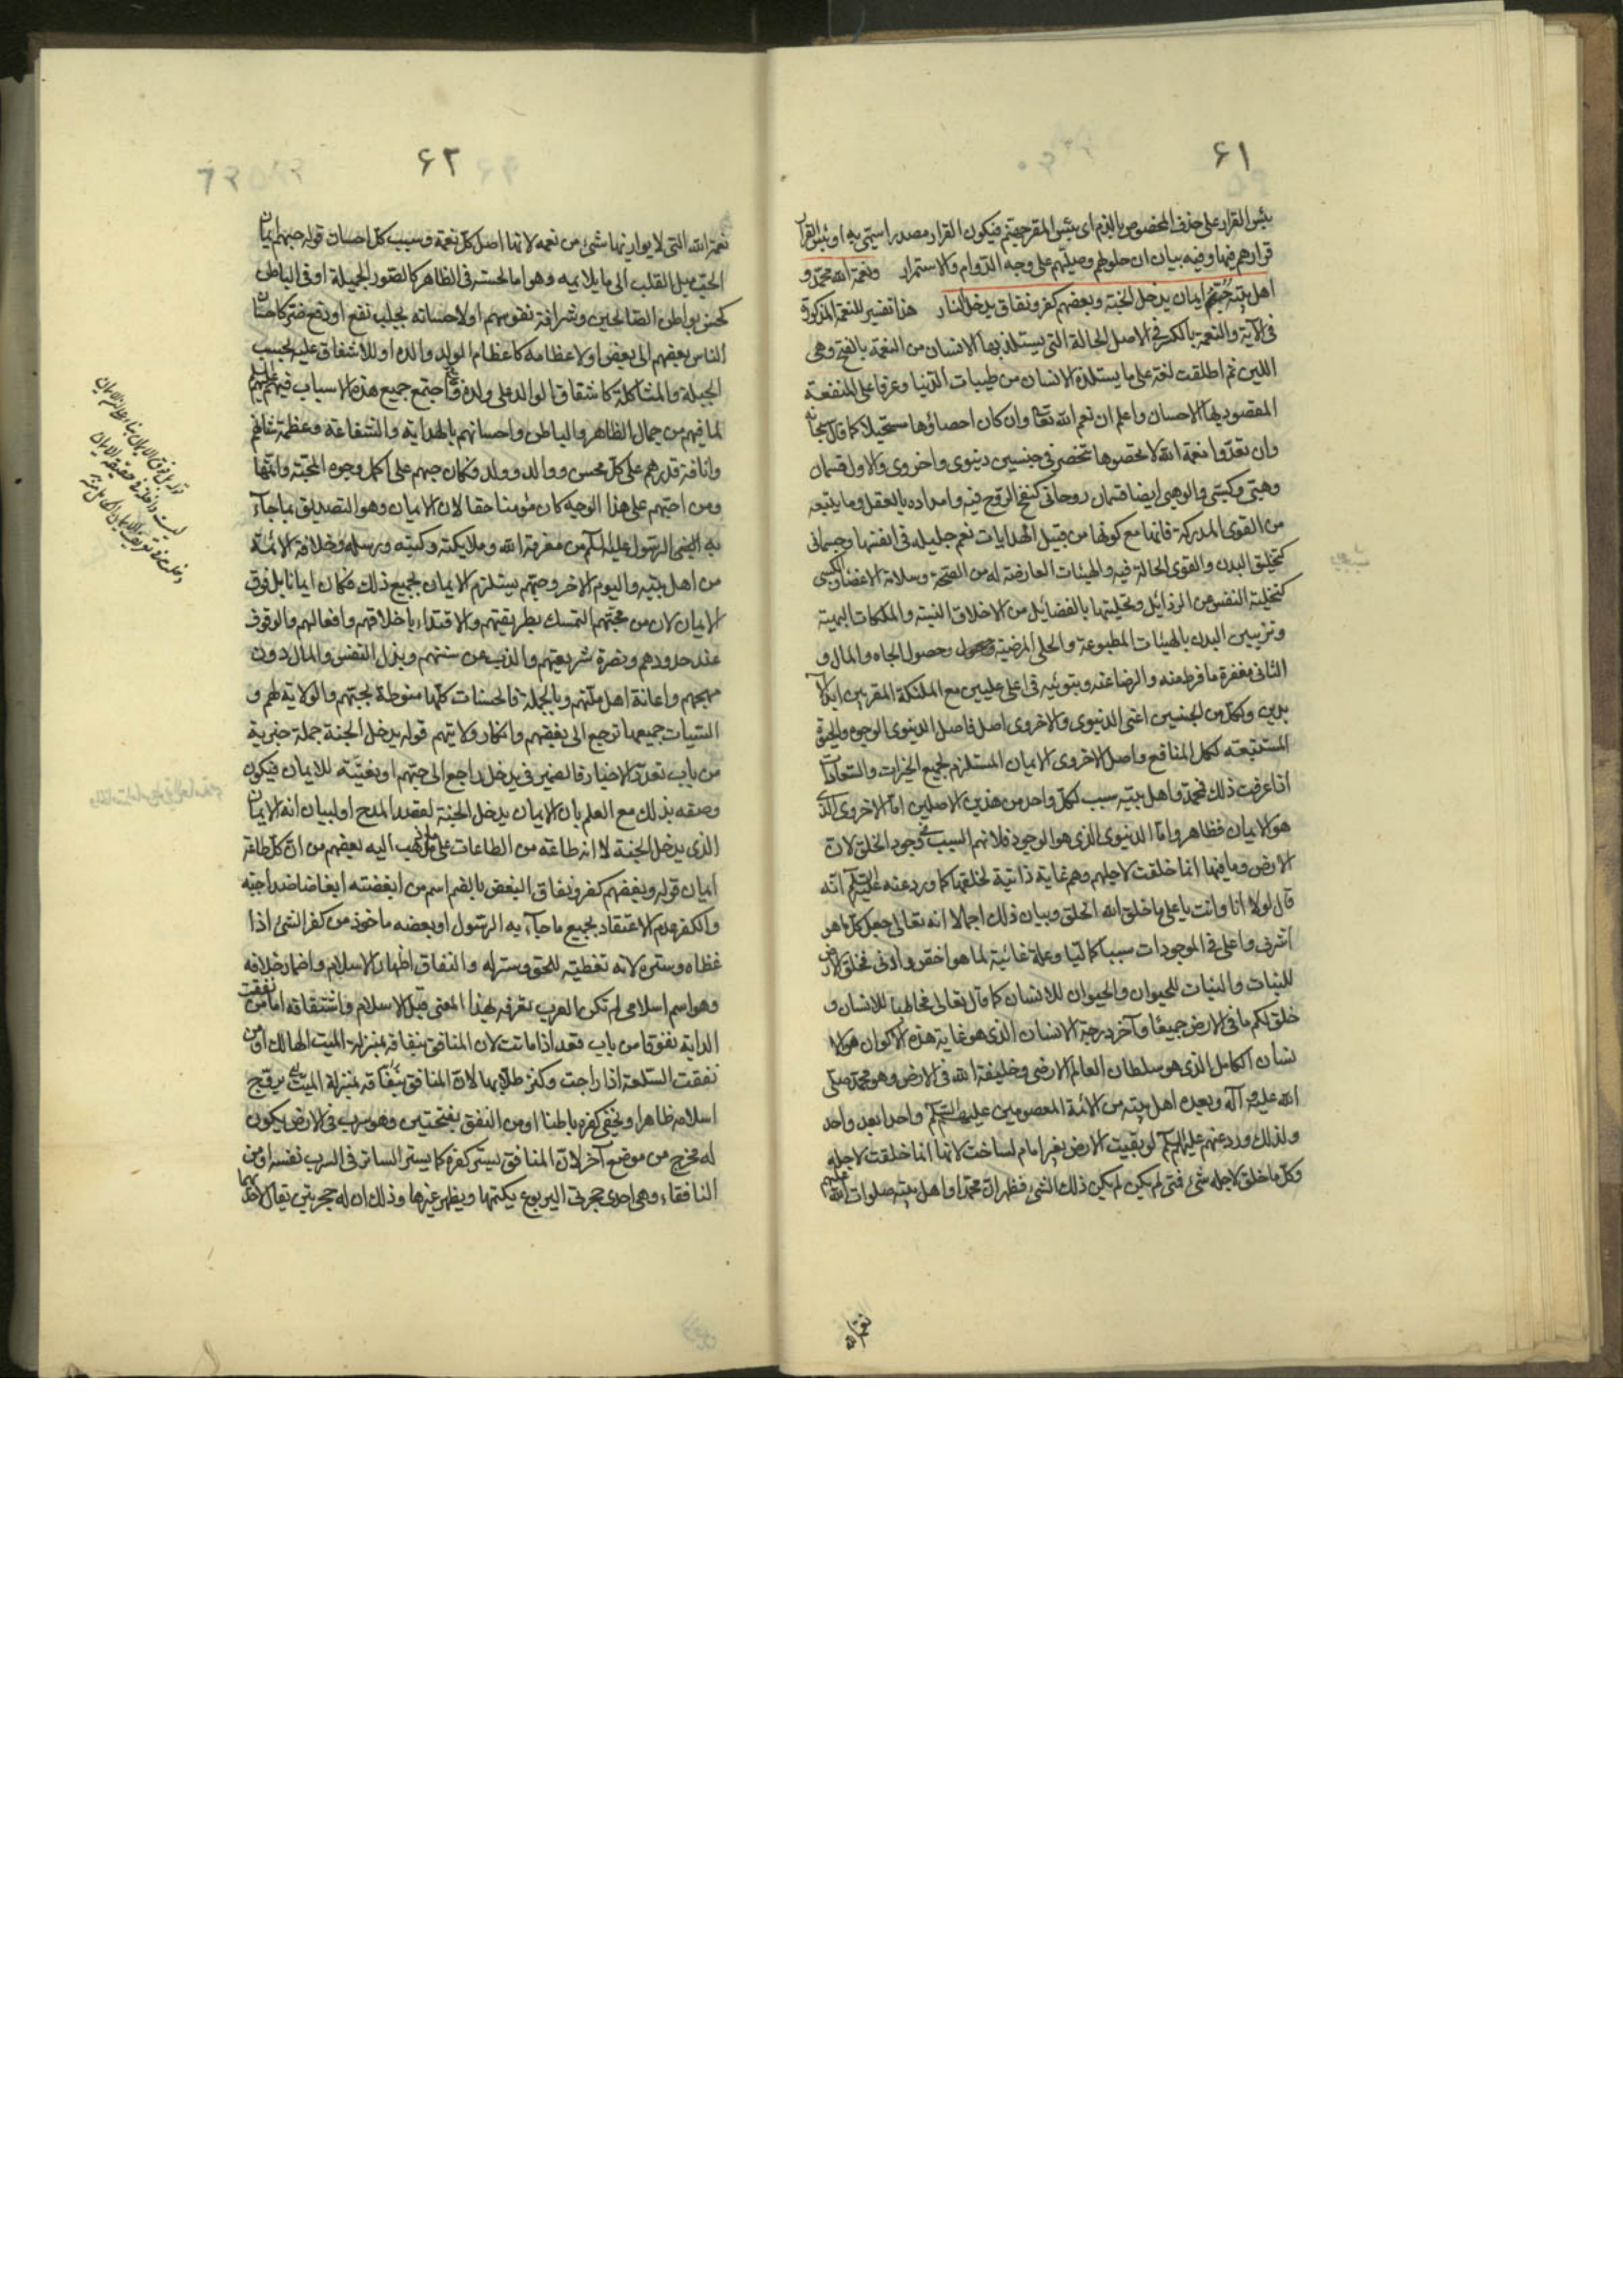 ۶۱
بئس القرار على حذف المخصوص بالذم اى بئس المقر جهنم فيكون القرار مصدرا سمى به او بئس القرار
قرارهم فيها وفيه بيان ان حلولهم وصليهم على وجه الدوام والاستمرار ونعمة الله محمد و
اهل بيته حبهم ايمان يدخل الجنة وبغضهم كفر ونفاق يدخل النار هذا تفسير للنعمة المذكورة
فى الآية والنعمة بالكسر فى الاصل الحالة التى يستلذ بها الانسان من النعمة بالفتح وهى
اللين ثم اطلقت لغة على ما يستلذه الانسان من طيبات الدنيا وعرفا على المنفعة
المقصود بها الاحسان واعلم ان نعم الله تعا وان كان احصاؤها مستحيلا كما قال سبحانه
وان تعدوا نعمة الله لا تحصوها تنحصر فى جنسين دنيوى واخروى والاول قسمان
وهبى وكسبى والوهبى ايضا قسمان روحانى كنفخ الروح فيه وامداده بالعقل وما يتبعه
من القوى المدركة فانها مع كونها من قبيل الهدايات نعم جليله فى انفسها وجسمانى
كتخليق البدن والقوى الحالة فيه والهيئات العارضة له من الصحة وسلامة الاعضا والكسبى
كتخلية النفس من الرذائل وتحليتها بالفضائل من الاخلاق السنية والملكات البهية
وتزيين البدن بالهيئات المطبوعة والحلى المرضية وحصول الجاه والمال و
الثانى مغفرة ما فرط منه والرضا عنه وتبوئيه فى اعلى عليين مع الملئكة المقربين ابد الا
بدين ولكل من الجنسين اعنى الدنيوى والاخروى اصل فاصل الدنيوى الوجود والحيوة
المستتبعه لكل المنافع واصل الاخروى الايمان المستلزم لجميع الخيرات والسعادات
اذا عرفت ذلك فمحمد واهل بيته سبب لكل واحد من هذين الاصلين اما الاخروى الذى
هو الايمان فظاهر واما الدنيوى الذى هو الوجود فلانهم السبب فى وجود الخلق لان
الارض وما فيها انما خلقت لاجلهم وهم غاية ذاتية لخلقها كما ورد عنه عليه السلام انه
قال لولا انا وانت يا على ما خلق الله الخلق وبيان ذلك اجمالا انه تعالى جعل كل ما هو
اشرف واعلى فى الموجودات سببا كماليا وعلة غائية لما هو اخقر وادنى فخلق الارض
للنبات والنبات للحيوان والحيوان للانسان كما قال تعالى مخاطبا للانسان و
خلق لكم ما فى الارض جميعا وآخر درجة الانسان الذى هو غاية هذه الاكوان هو الا
نسان الكامل الذى هو سلطان العالم الارضى وخليفة الله فى الارض وهو محمد صلى
الله عليه وآله وبعده اهل بيته من الائمة المعصومين عليهم السلام واحدا بعد واحد
ولذلك ورد عنهم عليهم السلام لو بقيت الارض بغير امام لساخت لانها انما خلقت لاجله
وكل ما خلق لاجله شئ فمتى لم يكن لم يكن ذلك الشئ فظهر ان محمدا واهل بيته صلوات الله عليهم
نعمة الله
۶۲
نعمة الله التى لا يوازنها شئ من نعمه لانها اصل كل نعمة وسبب كل احسان قوله حبهم ايمان
الحب ميل القلب الى ما يلايمه وهو اما لحسنه فى الظاهر كالصور الجميلة او فى الباطن
كحسن بواطن الصالحين وشرافة نفوسهم او لاحسانه بجلب نفع او دفع ضر كاحسان
الناس بعضهم الى بعض او لاعظامه كاعظام الولد والده او للاشفاق عليه لحسب
الجبلة والمشاكلة كاشفاق الوالد على ولده وقد اجتمع جميع هذه الاسباب فيهم عليهم السلام
لما فيهم من جمال الظاهر والباطن واحسانهم بالهداية والشفاعة وعظمة شانهم
وانافة قدرهم على كل محسن ووالد وولد فكان حبهم على اكمل وجوه المحبة واتمها
ومن احبهم على هذا الوجه كان مؤمنا حقا لان الايمان وهو التصديق بما جاء
به النبى الرسول عليه السلم من معرفة الله وملايكته وكتبه ورسله وخلافة الائمة
من اهل بيته واليوم الاخر وحبهم يستلزم الايمان بجميع ذلك فكان ايمانا بل فوق
الايمان لان من محبتهم التمسك بطريقتهم والاقتداء باخلاقهم وافعالهم والوقوف
عند حدودهم ونصرة شريعتهم والذب عن سننهم وبذل النفس والمال دون
مهجهم واعانة اهل ملتهم وبالجملة فالحسنات كلها منوطة بحبهم والولاية لهم و
السيئات جميعها ترجع الى بغضهم وانكار ولايتهم قوله يدخل الجنة جملة خبرية
من باب تعدد الاخبار فالضمير فى يدخل راجع الى حبهم او نعتية للايمان فيكون
وصفه بذلك مع العلم بان الايمان يدخل الجنة لقصد المدح او لبيان انه الايمان
الذى يدخل الجنة لا انه طاعة من الطاعات على ما ذهب اليه بعضهم من ان كل طاعة
ايمان قوله وبغضهم كفر ونفاق البغض بالضم اسم من ابغضته ابغاضا ضد احبه
والكفر عدم الاعتقاد بجميع ما جاء به الرسول او بعضه ماخوذ من كفر الشئ اذا
غطاه وستره لانه تغطية للحق وستر له والنفاق اظهار الاسلام واضمار خلافه
وهو اسم اسلامى لم تكن العرب تعرفه بهذا المعنى قبل الاسلام واشتقاقه اما من نفقت
الدابة نفوقا من باب قعد اذا ماتت لان المنافق بنفاقه بمنزلة الميت الهالك او من
نفقت السلعة اذا راجت وكثر طلابها لان المنافق بنفاقه بمنزلة الميت يروج
اسلامه ظاهرا ويخفى كفره باطنا او من النفق بفتحتين وهو سرب فى الارض يكون
له مخرج من موضع آخر لان المنافق يستر كفره كما يستر الساتر فى السرب نفسه او من
النافقاء وهى احدى جحرتى اليربوع يكتمها ويظهر غيرها وذلك ان له جحرتين يقال لاحدهما